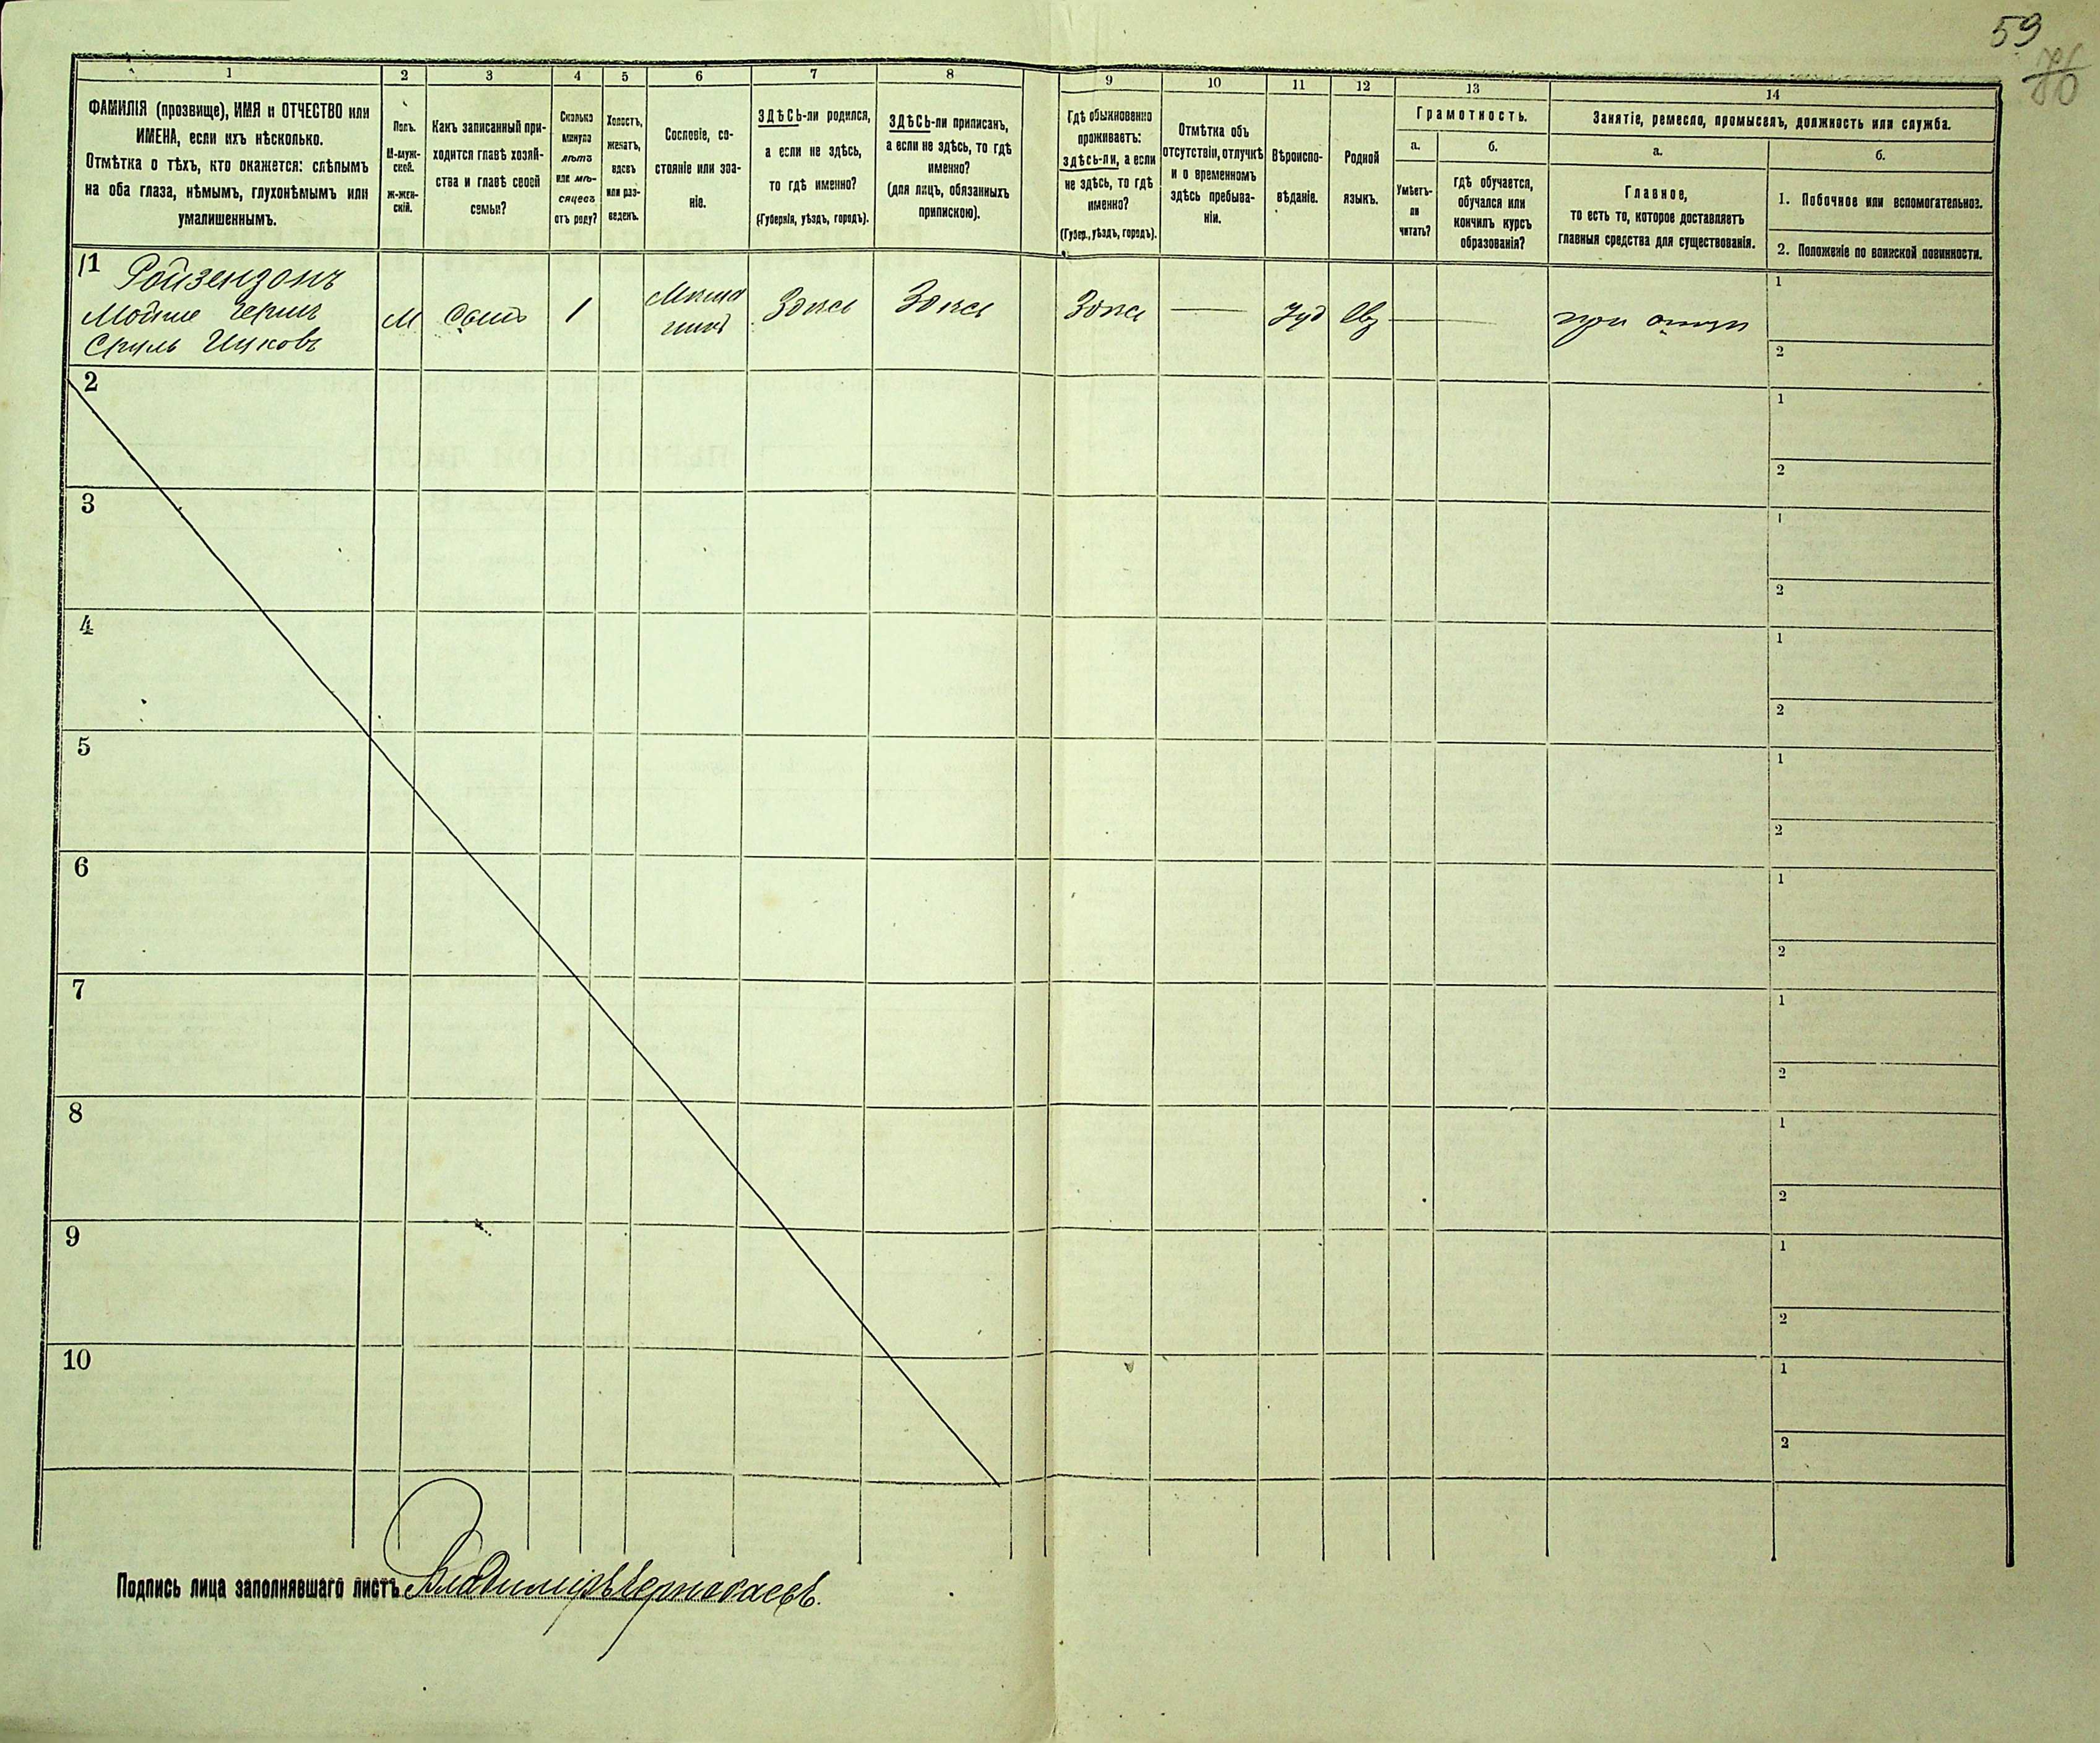 59
76
1
2
3
4
5
6
7
8
9
10
11
12
13
14
ФАМИЛІЯ (прозвище), ИМЯ и ОТЧЕСТВО или
ИМЕНА, если ихъ нѣсколько.
Отмѣтка о тѣхъ, кто окажется: слѣпымъ
на оба глаза, нѣмымъ, глухонѣмымъ или
умалишеннымъ.
Полъ.
М-муж-
ской.
Ж-жен-
скій.
Какъ записанный при-
ходится главѣ хозяй-
ства и главѣ своей
семьи?
Сколько
минуло
лѣтъ
или мѣ-
сяцевъ
отъ роду?
Холостъ,
женатъ,
вдовъ
или раз-
веденъ.
Сословіе, со-
стояніе или зва-
ніе.
ЗДѢСЬ-ли родился,
а если не здѣсь,
то гдѣ именно?
(Губернія, уѣздъ, городъ).
ЗДѢСЬ-ли приписанъ,
а если не здѣсь, то гдѣ
именно?
(для лицъ, обязанныхъ
припискою).
Гдѣ обыкновенно
проживаетъ:
здѣсь-ли, а если
не здѣсь, то гдѣ
именно?
(Губер., уѣздъ, городъ).
Отмѣтка объ
отсутствіи, отлучкѣ
и о временномъ
здѣсь пребыва-
ніи.
Вѣроиспо-
вѣданіе.
Родной
языкъ.
Грамотность.
а.
Умѣетъ-
ли
читать?
б.
гдѣ обучается,
обучался или
кончилъ курсъ
образованія?
Занятіе, ремесло, промыселъ, должность или служба.
а.
Главное,
то есть то, которое доставляетъ
главныя средства для существованія.
б.
1. Побочное или вспомогательное.
2. Положеніе по воинской повинности.
1
Ройзензонъ
Мойше Герш
Сруль Ицковъ
М
сынъ
1
Мѣща
нинъ
Здѣсь
Здѣсь
Здѣсь
—
Іуд
Евр
—
при отцѣ
1
2
2
1
2
3
1
2
4
1
2
5
1
2
6
1
2
7
1
2
8
1
2
9
1
2
10
1
2
Подпись лица заполнявшаго листъ Владиміръ